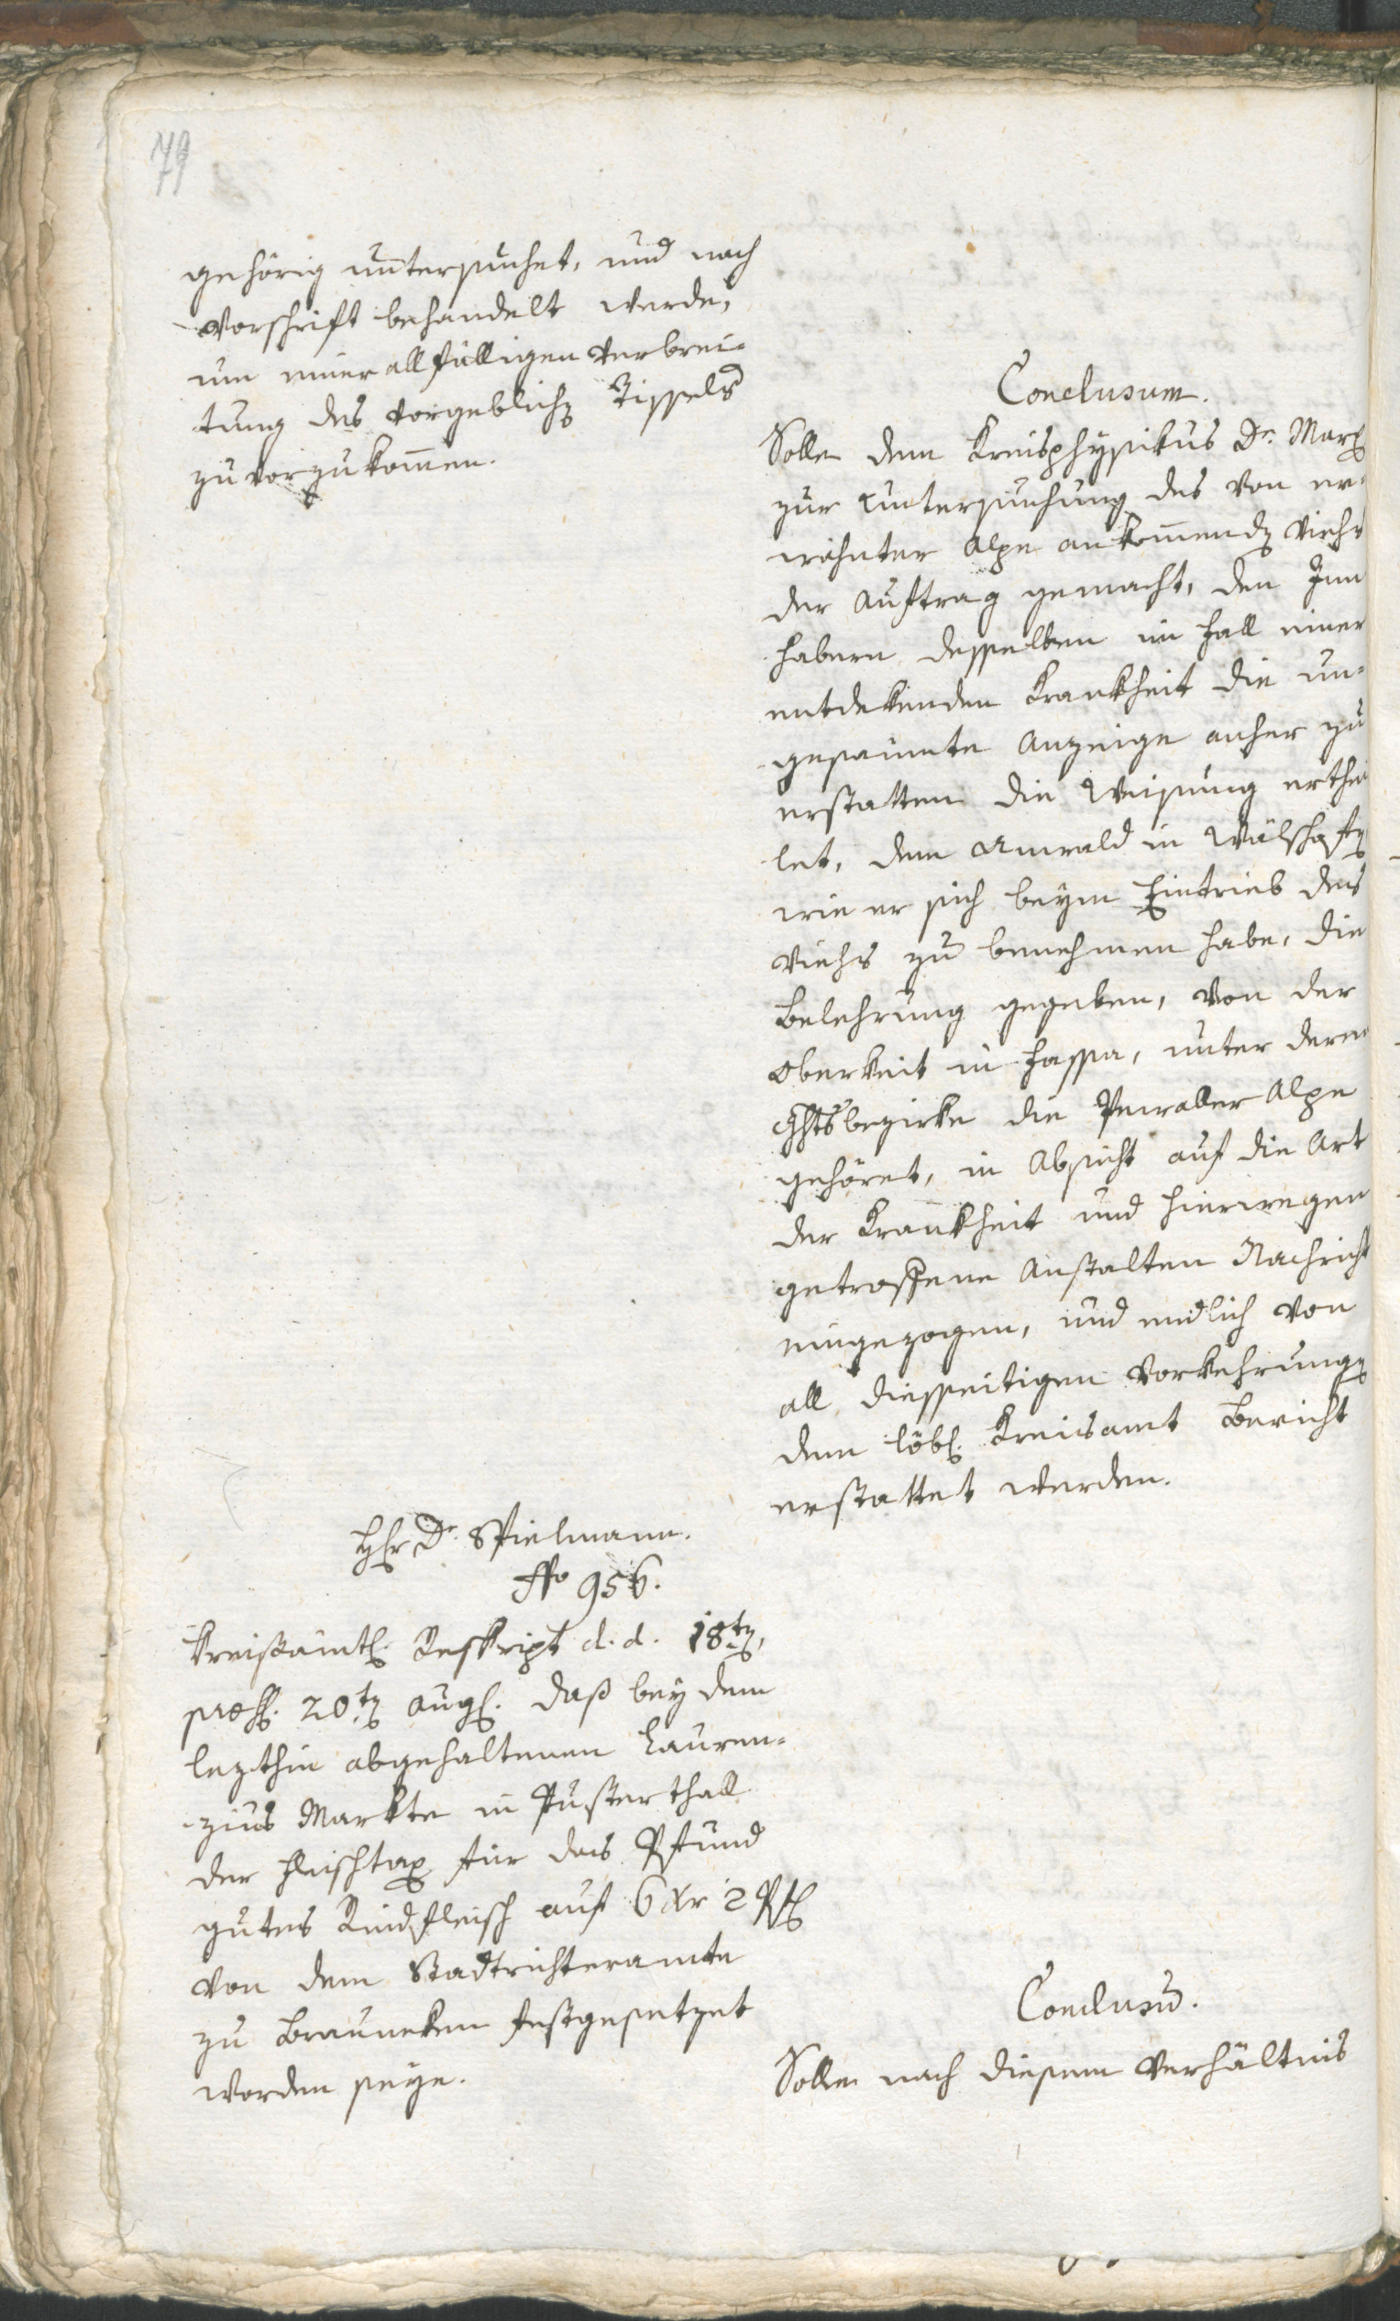 79
gehörig untersuchet, und nach
Vorschrift behandelt werde,
um einer allfälligen Verbrei-
tung des vorgeblichen
zuvorzukommen.
Conclusum.
Solle dem Kreisphysikus Dr. Marx
zur Untersuchung des von er-
wähnter Alpe ankommenden Viehs
der Auftrag gemacht, den Inn
habern desselben im Fall einer
entdekenden Krankheit die un-
gesäumte Anzeige anher zu
erstatten die Weisung erthei
let, dem Anwald in
wie er sich beym Eintrieb des
Viehs zu benehmen habe, die
Belehrung gegeben, von der
Oberkeit in Fassa, unter deren
Ghtsbezirke die Alpe
gehöret, in Absicht auf die Art
der Krankheit und hierwegen
getroffene Anstalten Nachricht
eingezogen, und endlich von
all diesseitigen Vorkehrungen
dem löbl. Kreisamt Bericht
erstattet werden.
Hr Dr. Spielmann.
No 956.
Kreisämtl. Reskript d. d. 18ten,
præs. 20ten Aug. daß bey dem
lezthin abgehaltenen Lauren-
zius Markte in Pusterthall
der Fleischtax für das Pfund
gutes Rindfleisch auf 6 Xr 2
von dem Stadtrichteramte
zu Brauneken festgesetzet
worden seye.
Conclusum.
Solle nach diesem Verhältnis